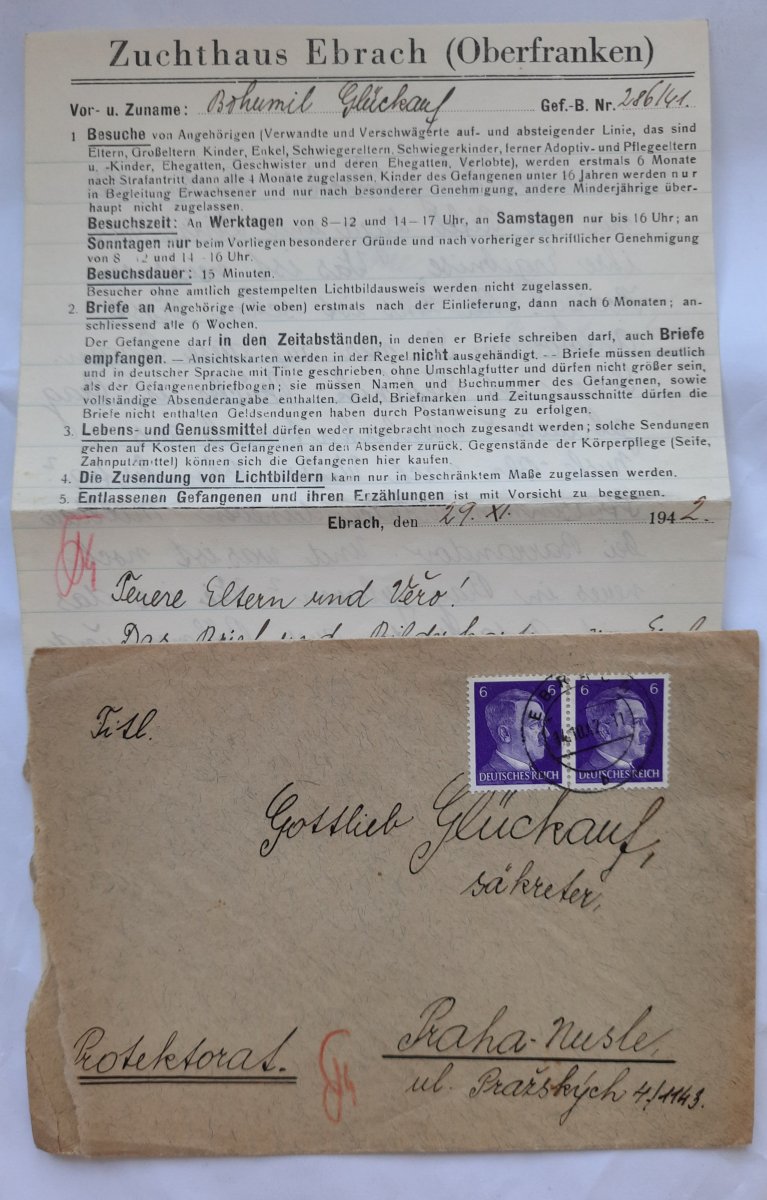 Zuchthaus Ebrach (Oberfranken)
Vor- u. Zuname: Bohumil Glückauf Gef.-B. Nr. 286/41.
1 Besuche von Angehörigen (Verwandte und Verschwägerte auf- und absteigender Linie, das sind
Eltern, Großeltern Kinder, Enkel, Schwiegereltern, Schwiegerkinder, ferner Adoptiv- und Pflegeeltern
u. -Kinder, Ehegatten, Geschwister und deren Ehegatten, Verlobte), werden erstmals 6 Monate
nach Strafantritt dann alle 4 Monate zugelassen. Kinder des Gefangenen unter 16 Jahren werden nur
in Begleitung Erwachsener und nur nach besonderer Genehmigung, andere Minderjährige über-
haupt nicht zugelassen.
Besuchszeit: An Werktagen von 8—12 und 14—17 Uhr, an Samstagen nur bis 16 Uhr; an
Sonntagen nur beim Vorliegen besonderer Gründe und nach vorheriger schriftlicher Genehmigung
von 8 12 und 14 -16 Uhr.
Besuchsdauer: 15 Minuten.
Besucher ohne amtlich gestempelten Lichtbildausweis werden nicht zugelassen.
2. Briefe an Angehörige (wie oben) erstmals nach der Einlieferung, dann nach 6 Monaten; an-
schliessend alle 6 Wochen.
Der Gefangene darf in den Zeitabständen, in denen er Briefe schreiben darf, auch Briefe
empfangen. — Ansichtskarten werden in der Regel nicht ausgehändigt. -- Briefe müssen deutlich
und in deutscher Sprache mit Tinte geschrieben, ohne Umschlagfutter und dürfen nicht größer sein,
als der Gefangenenbriefbogen; sie müssen Namen und Buchnummer des Gefangenen, sowie
vollständige Absenderangabe enthalten. Geld, Briefmarken und Zeitungsausschnitte dürfen die
Briefe nicht enthalten Geldsendungen haben durch Postanweisung zu erfolgen.
3. Lebens- und Genussmittel dürfen weder mitgebracht noch zugesandt werden; solche Sendungen
gehen auf Kosten des Gefangenen an den Absender zurück. Gegenstände der Körperpflege (Seife,
Zahnputzmittel) können sich die Gefangenen hier kaufen.
4. Die Zusendung von Lichtbildern kann nur in beschränktem Maße zugelassen werden.
5. Entlassenen Gefangenen und ihren Erzählungen ist mit Vorsicht zu begegnen.
Ebrach, den 29. XI. 1942.
Teuere Eltern und Věro!
Das Brief und
6 6 6 6
DEUTSCHES REICH DEUTSCHES REICH
EBRACH
Titl.
Gottlieb Glückauf,
säkreter,
Praha-Nusle,
Protektorat.
ul. Pražských 4/1143.